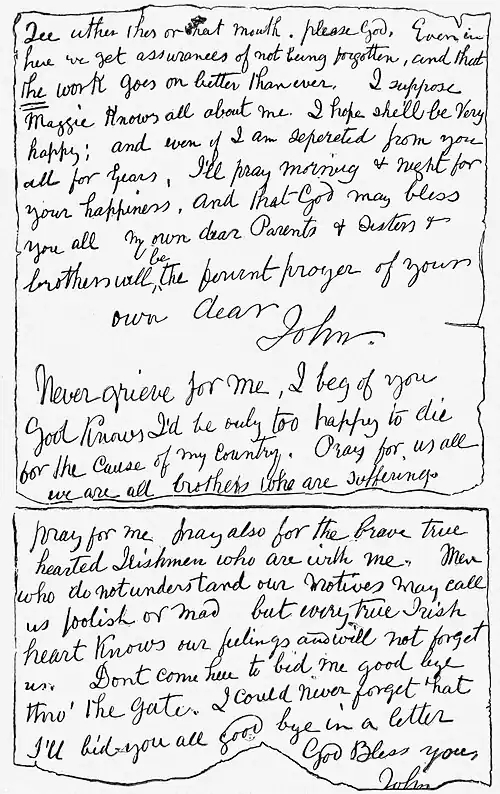 See either this or that mouth. please God, Even in
here we get assurances of not being forgotten, and that
the work goes on better than ever. I suppose
Maggie Knows all about me. I hope shell be Very
happy; and even if I am sepereted from you
all for years, I'll pray morning & night for
your happiness, and that God may bless
you all my own dear Parents & Sisters &
brothers will be the fervent prayer of your
own dear
John.
Never grieve for me, I beg of you
God Knows I'd be only too happy to die
for the cause of my country. Pray for us all
we are all brothers who are sufferings
pray for me pray also for the brave true
hearted Irishmen who are with me. Men
who do not understand our motives may call
us foolish or mad but every true Irish
heart Knows our feelings and will not forget
us. Dont come here to bid me good bye
thro' the gate. I could never forget that
I'll bid you all good bye in a letter
God Bless you
John